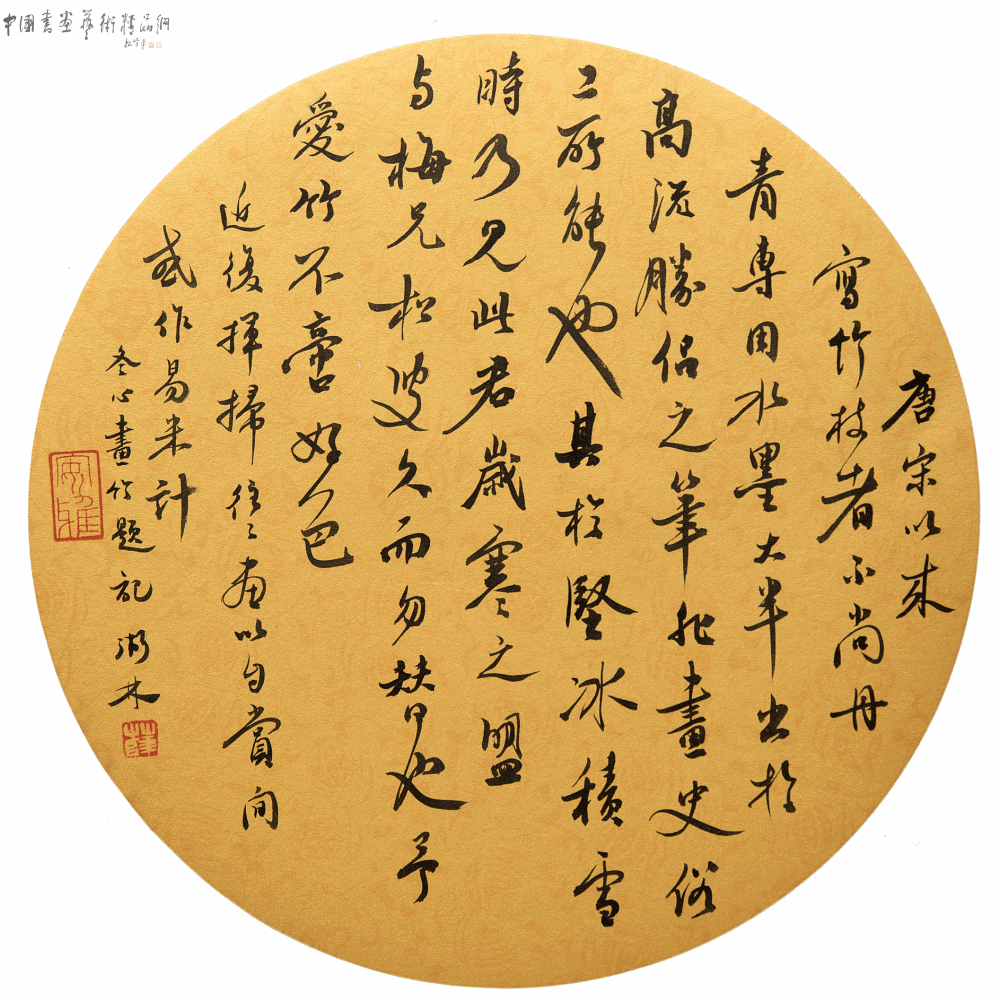 中國書畫藝術精品網
唐宋以来
寫竹枝者不尚丹
青專用水墨大半出於
高流勝侣之筆非畫史俗
工所能也其於堅冰積雪
時乃見此君歲寒之盟
与梅兄松叟久而勿替也予
愛竹不啻好色
近復揮掃往〻畫以自賞间
或作易米計
冬心畫竹題記 林
風雅